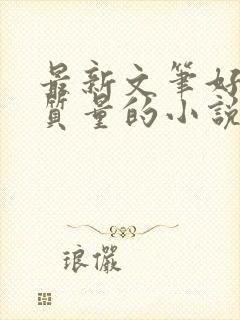 最新文筆好
質量的小說
琅儷